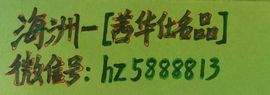 海洲一[茜华仕名品]
微信号:hz5888813